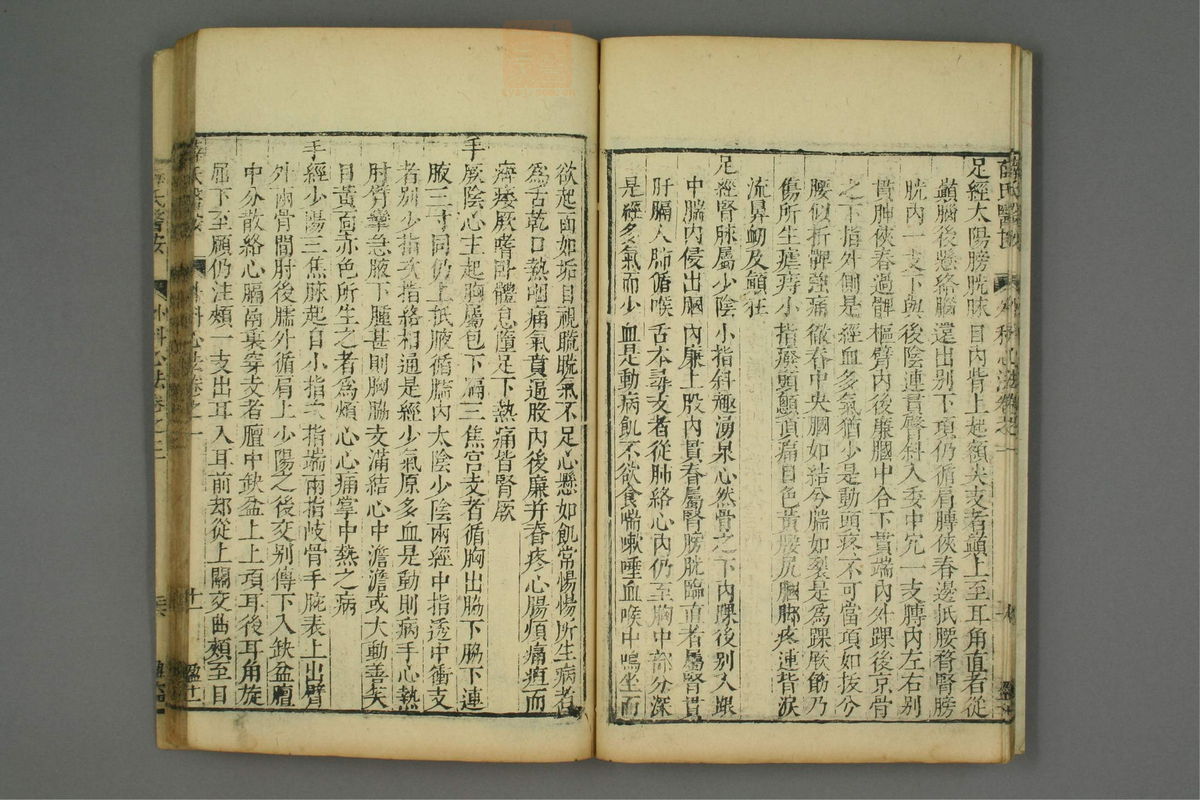 足經太陽膀胱脉目內眥上起額尖支者巔上至耳角直者從
巔腦後懸絡腦還出別下項仍循肩膊俠脊邊抵腰膂腎膀
胱內一支下與後陰連貫臀斜入委中穴一支膊內左右別
貫胛俠脊過髀樞臂內後廉膕中合下貫踹內外踝後京骨
之下指外側是經血多氣猶少是動頭疼不可當項如拔兮
腰似折髀強痛徹脊中央膕如結兮腨如裂是為踝厥筋乃
傷所生瘧痔小指廢頭顖頂痛目色黃腰尻膕腳疼連背淚
流鼻衄及顛狂
足經腎脉屬少陰小指斜趨湧泉心然骨之下內踝後別入跟
中腨內侵出膕內廉上股內貫脊屬腎膀胱臨直者屬腎貫
肝膈入肺循喉舌本尋支者從肺絡心內仍至胸中部分深
是經多氣而少血是動病飢不欲食喘嗽唾血喉中鳴坐而
欲起面如垢目視䀮䀮氣不足心懸如飢常惕惕所生病者
為舌乾口熱咽痛氣賁逼股內後廉并脊疼心腸煩痛疸而
澼痿厥嗜卧體怠墮足下熱痛皆腎厥
手厥陰心主起胸屬包下膈三焦宮支者循胸出脇下脇下連
腋三寸同仍上抵腋循臑內太陰少陰兩經中指透中衝支
者別少指次指絡相通是經少氣原多血是動則病手心熱
肘臂攣急腋下腫甚則胸脇支滿結心中澹澹或大動善笑
目黃面赤色所生之者為煩心心痛掌中熱之病
手經少陽三焦脉起自小指次指端兩指歧骨手腕表上出臂
外兩骨間肘後臑外循肩上少陽之後交別傳下入缺盆膻
中分散絡心膈兩裏穿支者膻中缺盆上上項耳後耳角旋
屈下至頤仍注頰一支出耳入耳前却從上關交曲頰至目